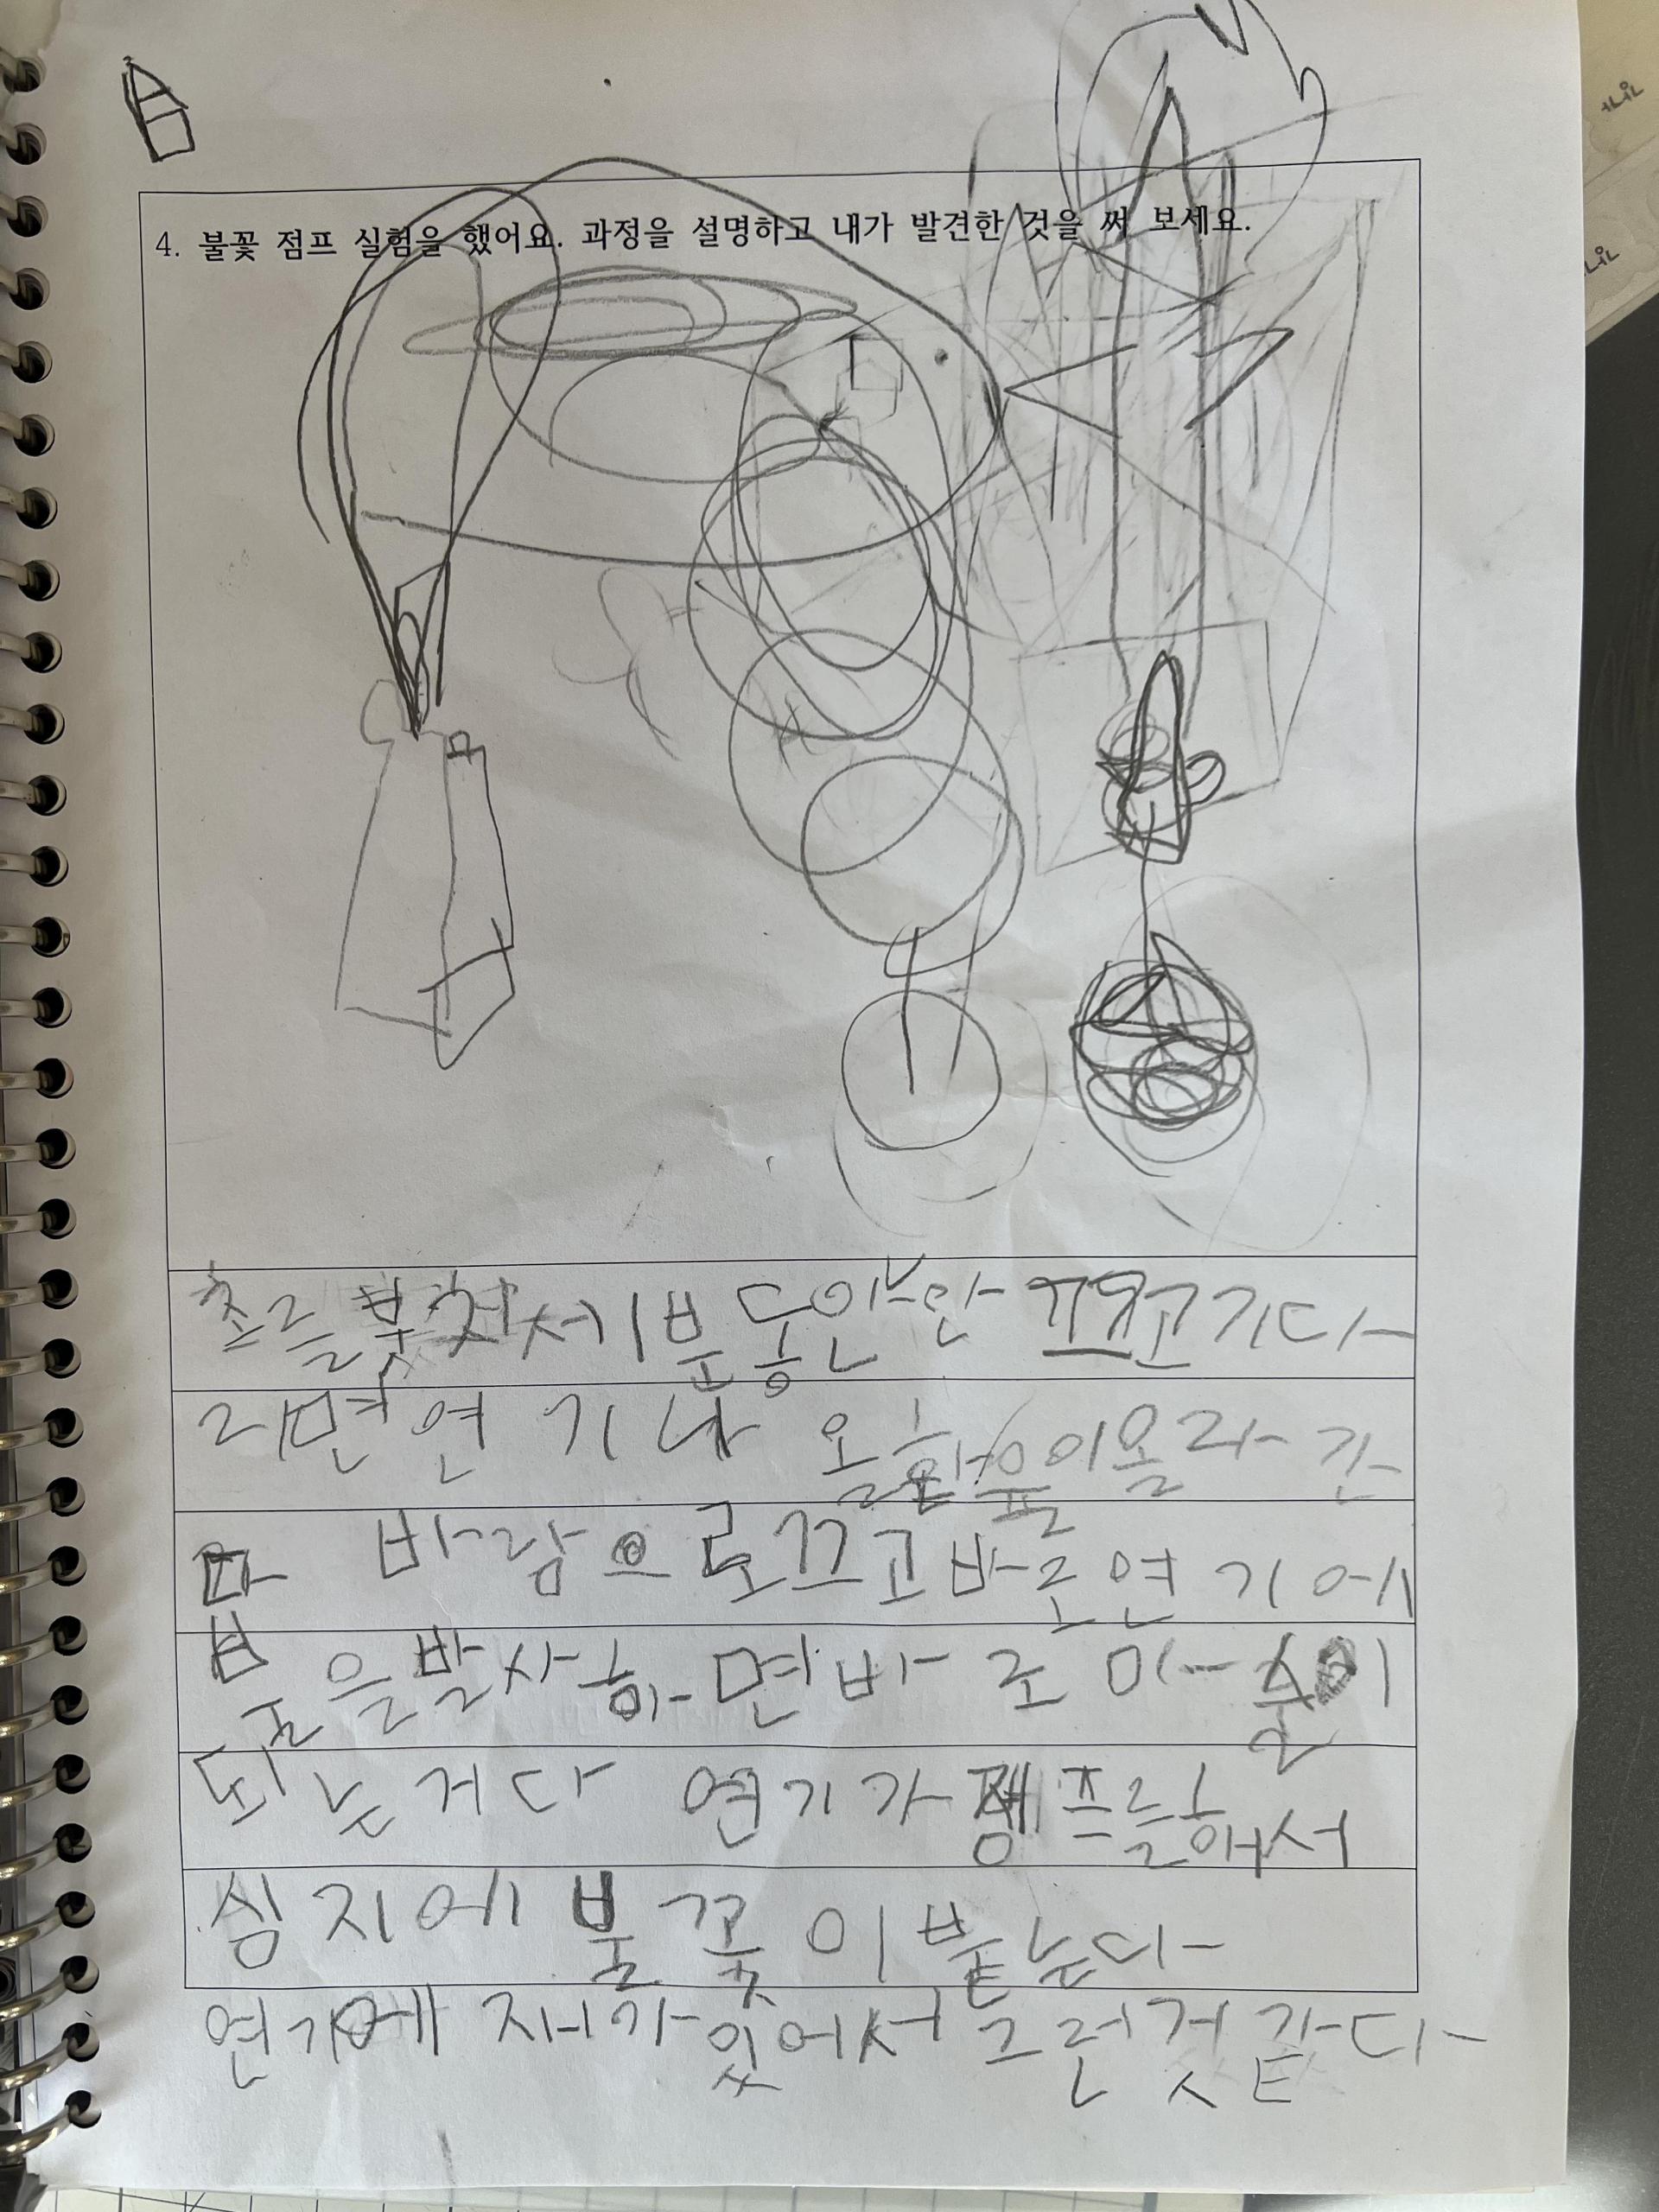 4. 불꽃 점프 실험을 했어요. 과정을 설명하고 내가 발견한 것을 써 보세요.
초를 붙처서 기분 동안 기다
리면 연기나 올 이 올라 간
다 바람으로 끄고 바로 연기에
불을 발사하면 바로 마술이
되는거다 연기가 점프를 해서
심지에 불꽃이 붙는다
연기에 재가 있어서 그런것 같다